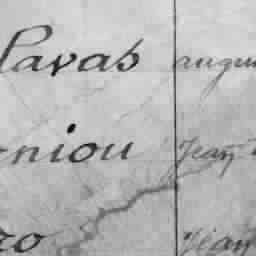 Pavas augu
niou Jean
ro Jean